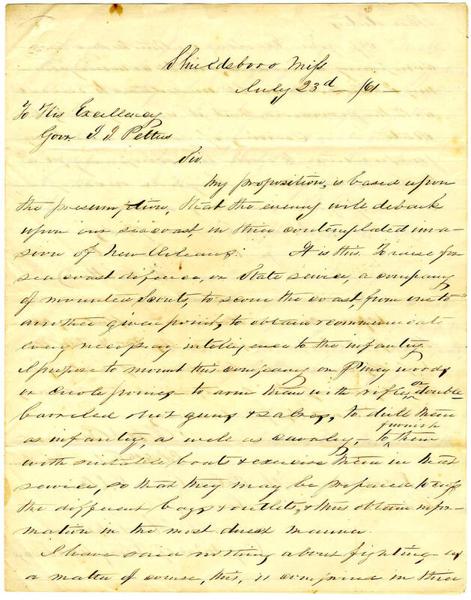 Shieldsboro Miss
July 23d /61
To His Excellency
Gov J. J. Pettus
Sir
My proposition, is based upon
the presumption, that the enemy will debark
upon our seacoast in their contemplated inva-
sion of New Orleans. It is this. To raise for
sea coast defense, in State service, a company
of mounted Scouts, to scour the coast, from one to
another given point, to obtain & communicate
every necessary intelligence to the infantry.
I propose to mount this company on Piney woods
or Creole ponies to arm them with rifles or double
barreled shot guns & sabres, to drill them
as infantry as well as cavalry, to furnish them
with suitable boats & exercise them in that
service, so that they may be prepared to
the different bays & outlets, & thus obtain infor-
mation in the most direct manner.
I have said nothing about fighting as
a matter of course, this, is comprised in their